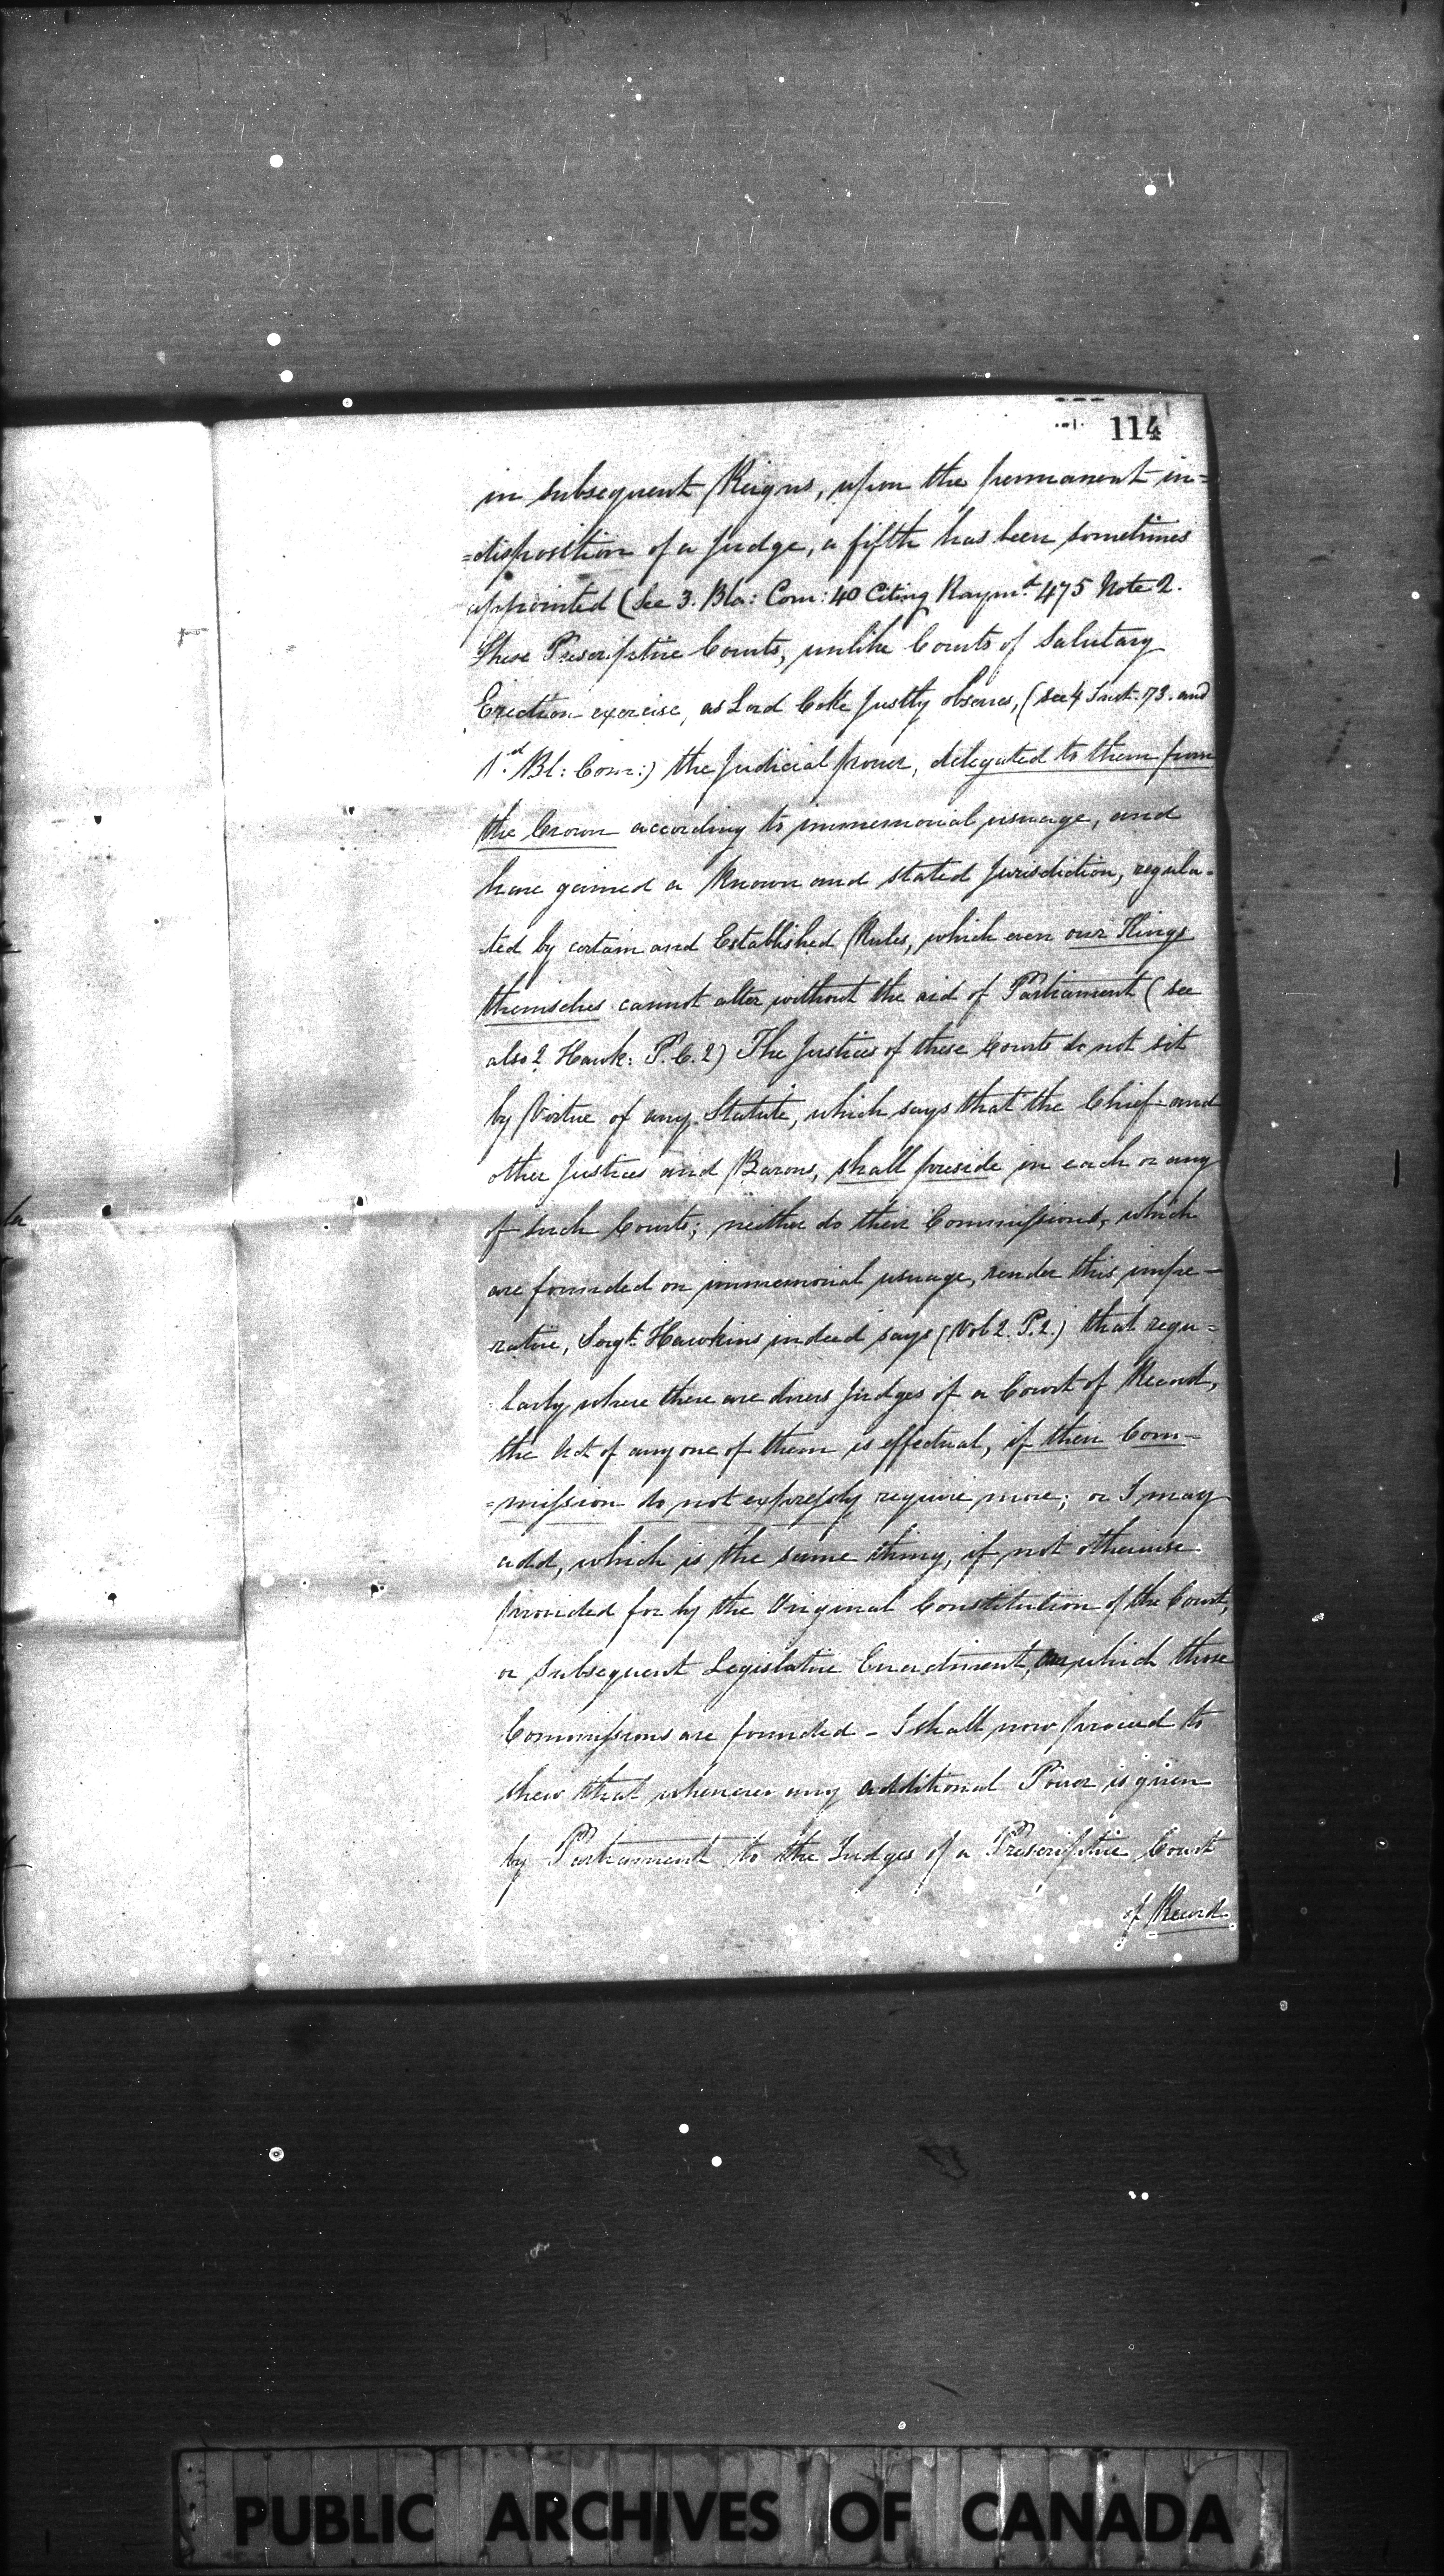 114
in subsequent Reigns, upon the permanent in=
=disposition of a Judge, a fifth has been sometimes
appointed (See 3. Bla: Com: 40 Citing Raymd. 475 Note 2.
These Prescriptive Courts, unlike Courts of Salutary
Erection exercise, as Lord Coke justly observes, (see 4 Inst. 73. and
1st. Bl: Com:) the Judicial power, delegated to them from
the Crown according to immemorial usuage, and
have gained a known and stated Jurisdiction, regula-
ted by certain and Established Rules, which even our Kings
themselves cannot alter without the aid of Parliament (see
also 2 Hawk: P. C. 2) The Justices of these Courts do not sit
by Virtue of any Statute, which says that the Chief and
other Justices and Barons, shall preside in each or any
of such Courts; neither do their Commissions, which
are founded on immemorial usuage, render this impe-
rative, Sergt. Hawkins indeed says (Vol 2. P. 2.) that regu=
larly where there are divers Judges of a Court of Record,
the Act of any one of them is effectual, if their Com-
=mission do not expressly require more; or I may
add, which is the same thing, if not otherwise
provided for by the Original Constitution of the Court,
or subsequent Legislative Enactment, on which those
Commissions are founded - I shall now proceed to
shew that whenever any additional Power is given
by Parliament to the Judges of a Prescriptive Court
of Record
PUBLIC ARCHIVES OF CANADA